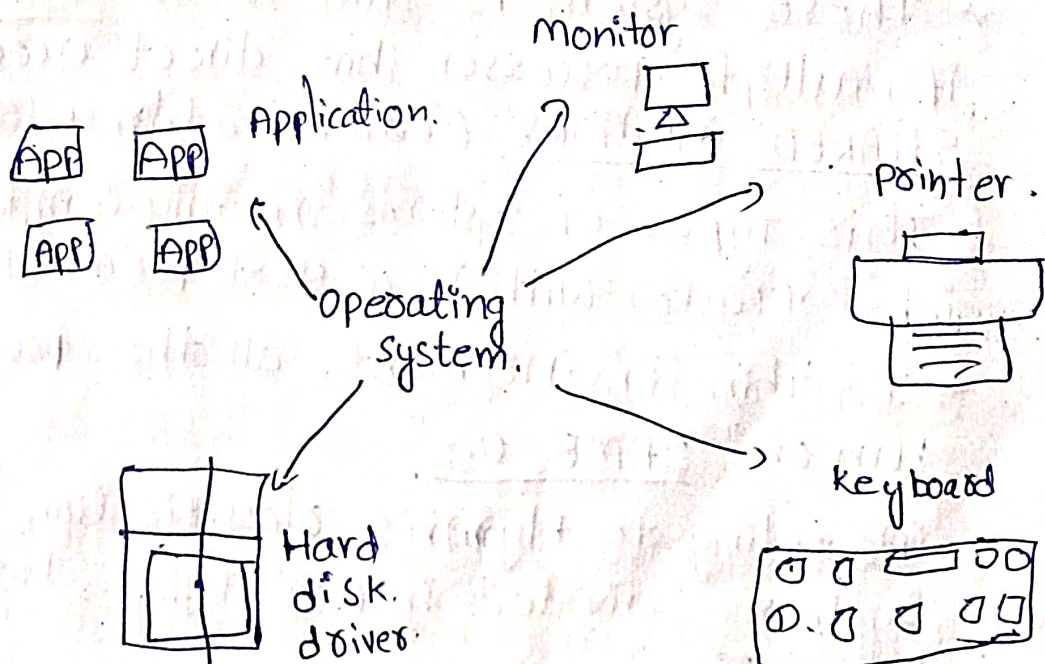 Monitor
Application.
APP APP
Printer.
APP APP
Operating
system.
Keyboard
Hard
disk.
driver.